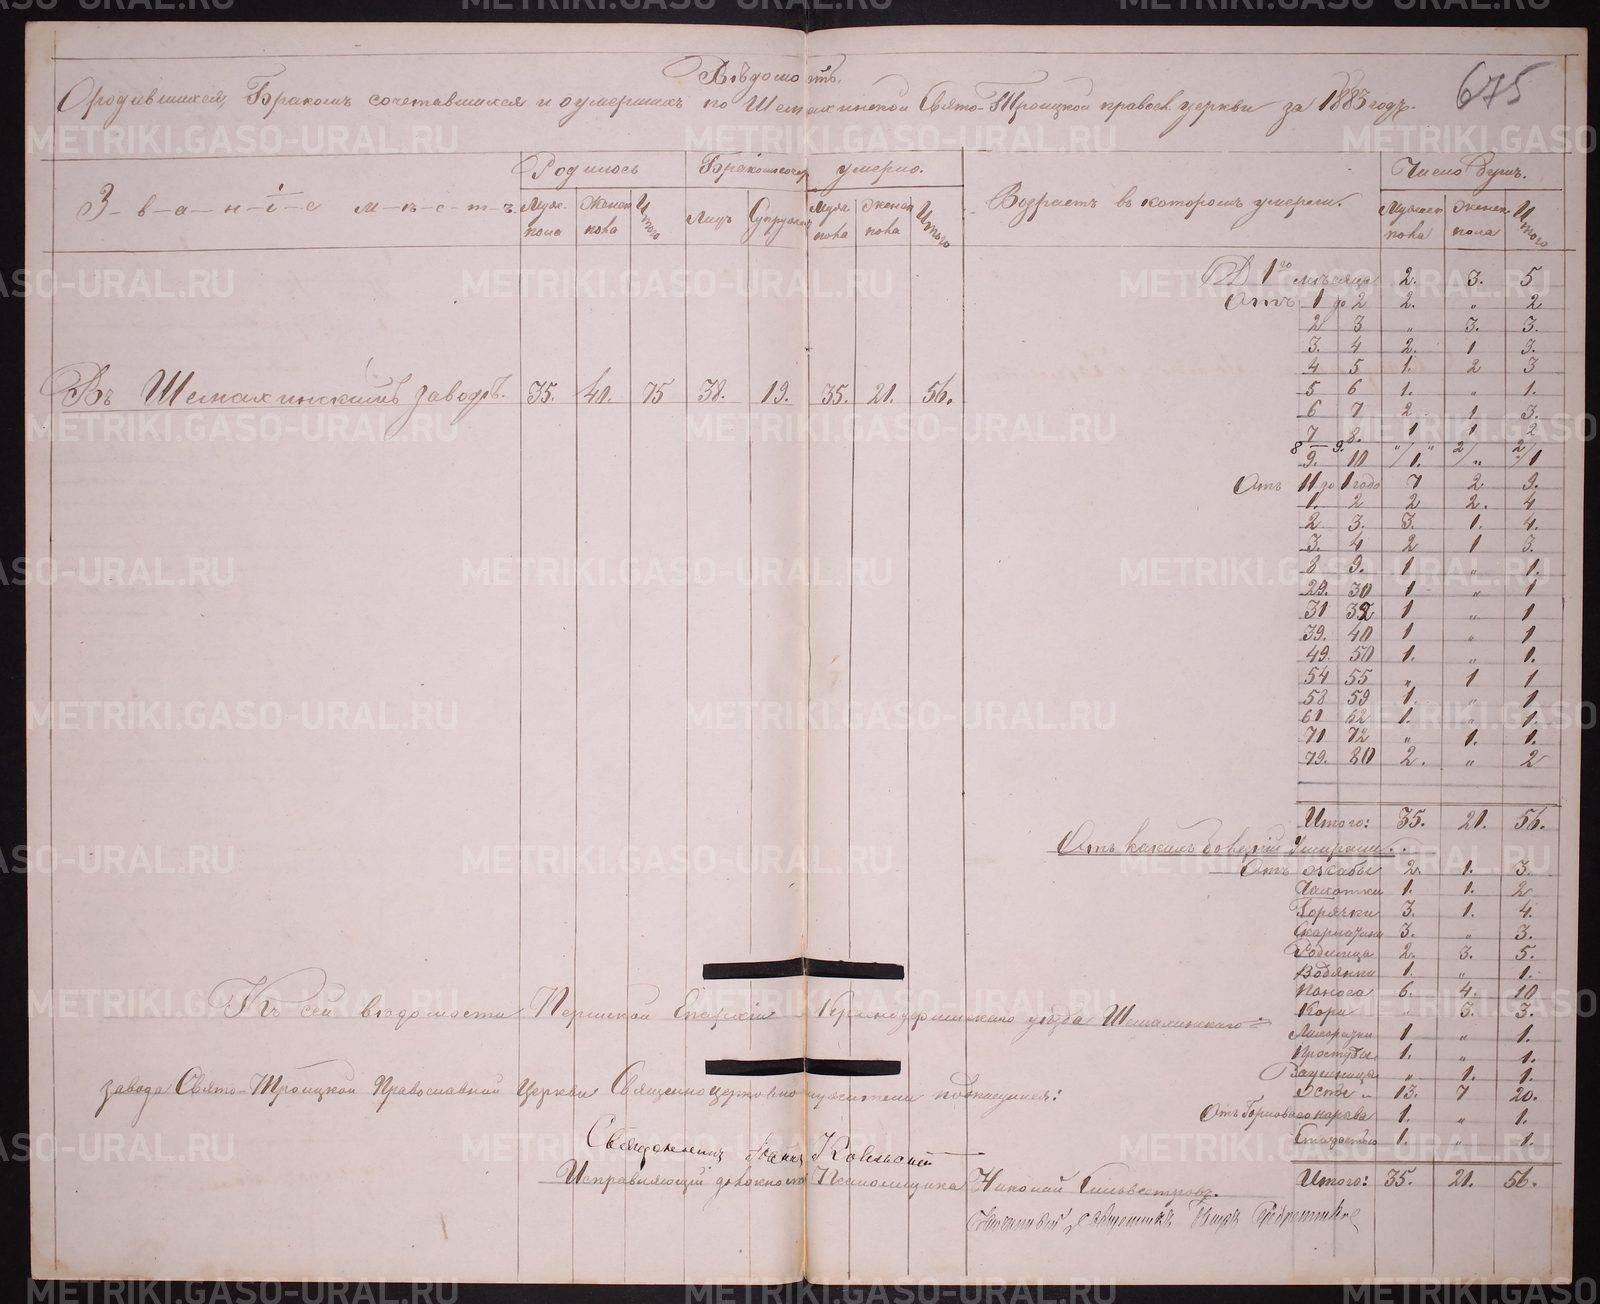 Вѣдомость
О родившихся, Бракомъ сочетавшихся и о умершихъ по Шемахинской Свято-Троицкой правосл. церкви за 1883 годъ.
675
Званіе мѣстъ
Родилось
Бракосочет.
умерло.
Возрастъ въ которомъ умерли.
Число душъ.
Муже. пола
Женск пола
Итого
Лицъ
Супружес
Муж пола
Женск пола
Итого
Мужеск пола
Женск пола
Итого
До 1го мѣсяца 2. 3. 5
Отъ 1 до 2 2. " 2
2 3 " 3. 3.
3. 4 2. 1 3.
4 5 1. 2 3
5 6 1. " 1.
6 7 2. 1 3.
Въ Шемахинскомъ заводѣ. 35. 40. 75 38. 19. 35. 21. 56.
7 8. 1 1 2
8 – 9. " 2 2
9. 10 1. " 1
Отъ 11 до 1 года 7 2 9.
1. 2 2 2. 4
2 3. 3. 1. 4.
3. 4 2 1 3.
8 9. 1 " 1.
29. 30 1. " 1
31 32 1 " 1
39. 40 1 " 1
49. 50 1. " 1.
54 55 " 1 1
58 59 1. " 1
61 62 1. " 1.
71 72 " 1. 1.
79. 80 2. " 2
Итого: 35. 21. 56.
Отъ какихъ болѣзній Умирали.
Отъ жабы 2. 1. 3.
Чахотки 1. 1. 2
Горячки 3. 1. 4.
Скарлатины 3. " 3.
Родимца 2. 3. 5.
Водянки 1. " 1.
Поноса 6. 4. 10
Кори " 3. 3.
Лихорадки 1 " 1.
Простуды 1. " 1.
" 1. 1.
Оспы " 13. 7 20.
Отъ Горловаго 1. " 1.
Старости 1. " 1.
Итого: 35. 21. 56.
Къ сей вѣдомости Пермской Епархіи Красноуфимскаго уѣзда Шемахинскаго
завода Свято-Троицкой Православной Церкви Священноцерковнослужители подписались:
Священникъ Іоаннъ
Исправляющій должность Псаломщика Николай Сильвестровъ.